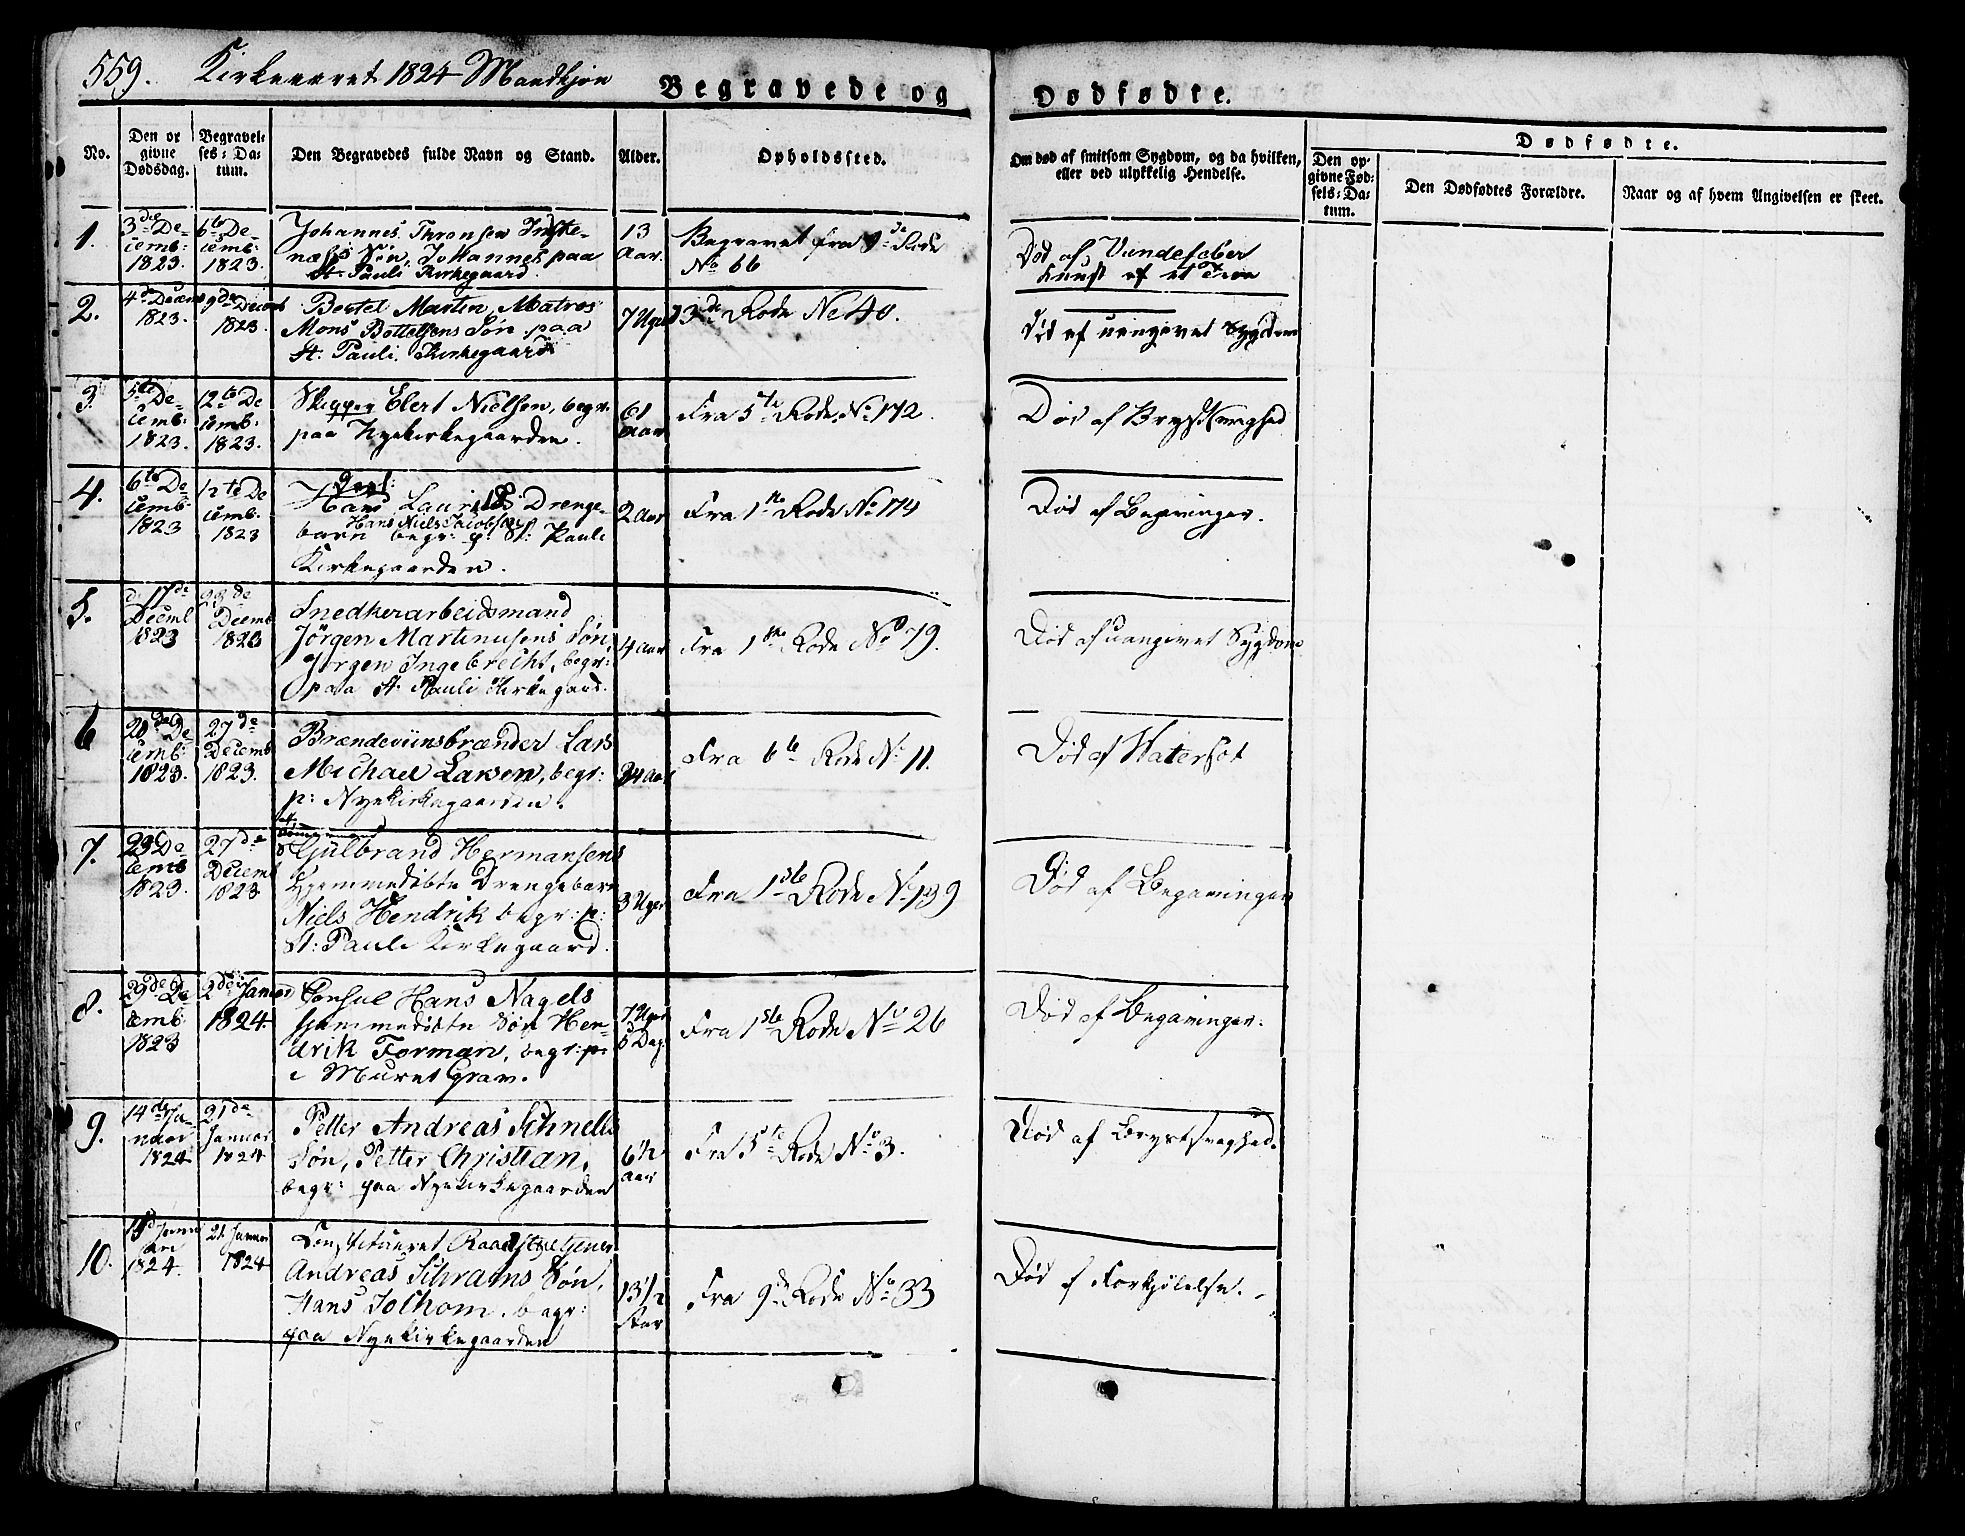 559. Kirkeaaret 1824 Mandkjøn
Begravede og Dødfødte.
No.
Den opgivne Dødsdag.
Begravelses-Datum.
Den Begravedes fulde Navn og Stand.
Alder.
Opholdssted.
Om død af smitsom Sygdom, og da hvilken,
eller ved ulykkelig Hendelse.
Dødfødte.
Den opgivne Fødsels-Datum.
Den Dødfødtes Forældre.
Naar og af hvem Angivelsen er skeet.
1.
3die December 1823.
6te December 1823.
Johannes Thronsen
Søn, Johannes paa
St. Pauli Kirkegaard.
13 Aar.
Begravet fra Rode
No 66
Død af
2.
4de Decemb 1823.
9de Decemb 1823.
Bertel Martin, Matros
Mons Bottelsens Søn paa
St. Pauli Kirkegaard
7 Uger
3de Rode No 40.
Død af uangivet Sygdom
3.
5te December 1823.
12te December 1823.
Skipper Elert Nielsen, begr.
paa Nyekirkegaarden.
61 Aar
Fra 5te Rode No 172.
Død af Brystsvaghed
4.
6te December 1823
12te December 1823
Hans Laurits Drenge-
Hans Niels Jacobsen
barn begr: p: St: Pauli
Kirkegaarden.
2 Aar
Fra 1ste Rode No 174
Død af Begavinger.
5.
17de Decemb 1823
23de Decemb 1823
Snedkerarbeidsmand
Jørgen Martinusens Søn
Jørgen Ingebrecht, begr:
paa St. Pauli Kirkegaard.
4 Aar
Fra 1ste Rode No 79.
Død af uangivet Sygdom
6
20de December 1823.
27de December 1823.
Brændeviinsbrænder Lars
Michael Larsen, begr:
p: Nyekirkegaarden.
34 Aar
Fra 6te Rode No 11.
Død af Watersot
7.
23de December 1823.
27de December 1823
Gulbrand Hermansens
hjemmedøbte Drengebarn
Niels Hendrik begr: p:
St: Pauli Kirkegaard.
3 Uger
Fra 1ste Rode No 139
Død af Begavinger
8.
29de December 1823
2den Januar 1824
Consul Hans Nagels
hjemmedøbte Søn Hen-
drik Forman, begr: p:
i Muret Grav.
7 Uger 5 Dag.
Fra 1ste Rode No 26
Død af Begavinger.
9.
14de Januar 1824
21de Januar 1824
Petter Andreas Schnells
Søn, Petter Christian,
begr: paa Nyekirkegaarden
6 1/2 Aar
Fra 5te Rode No 3.
Død af Brystsvaghed.
10.
Januar 1824.
21 Januar 1824
Raadstuetjener
Andreas Schrams Søn,
Hans Jochom, begr:
paa Nyekirkegaarden
13 1/2 Aar
Fra 9de Rode No 33
Død af Forkjølelse.